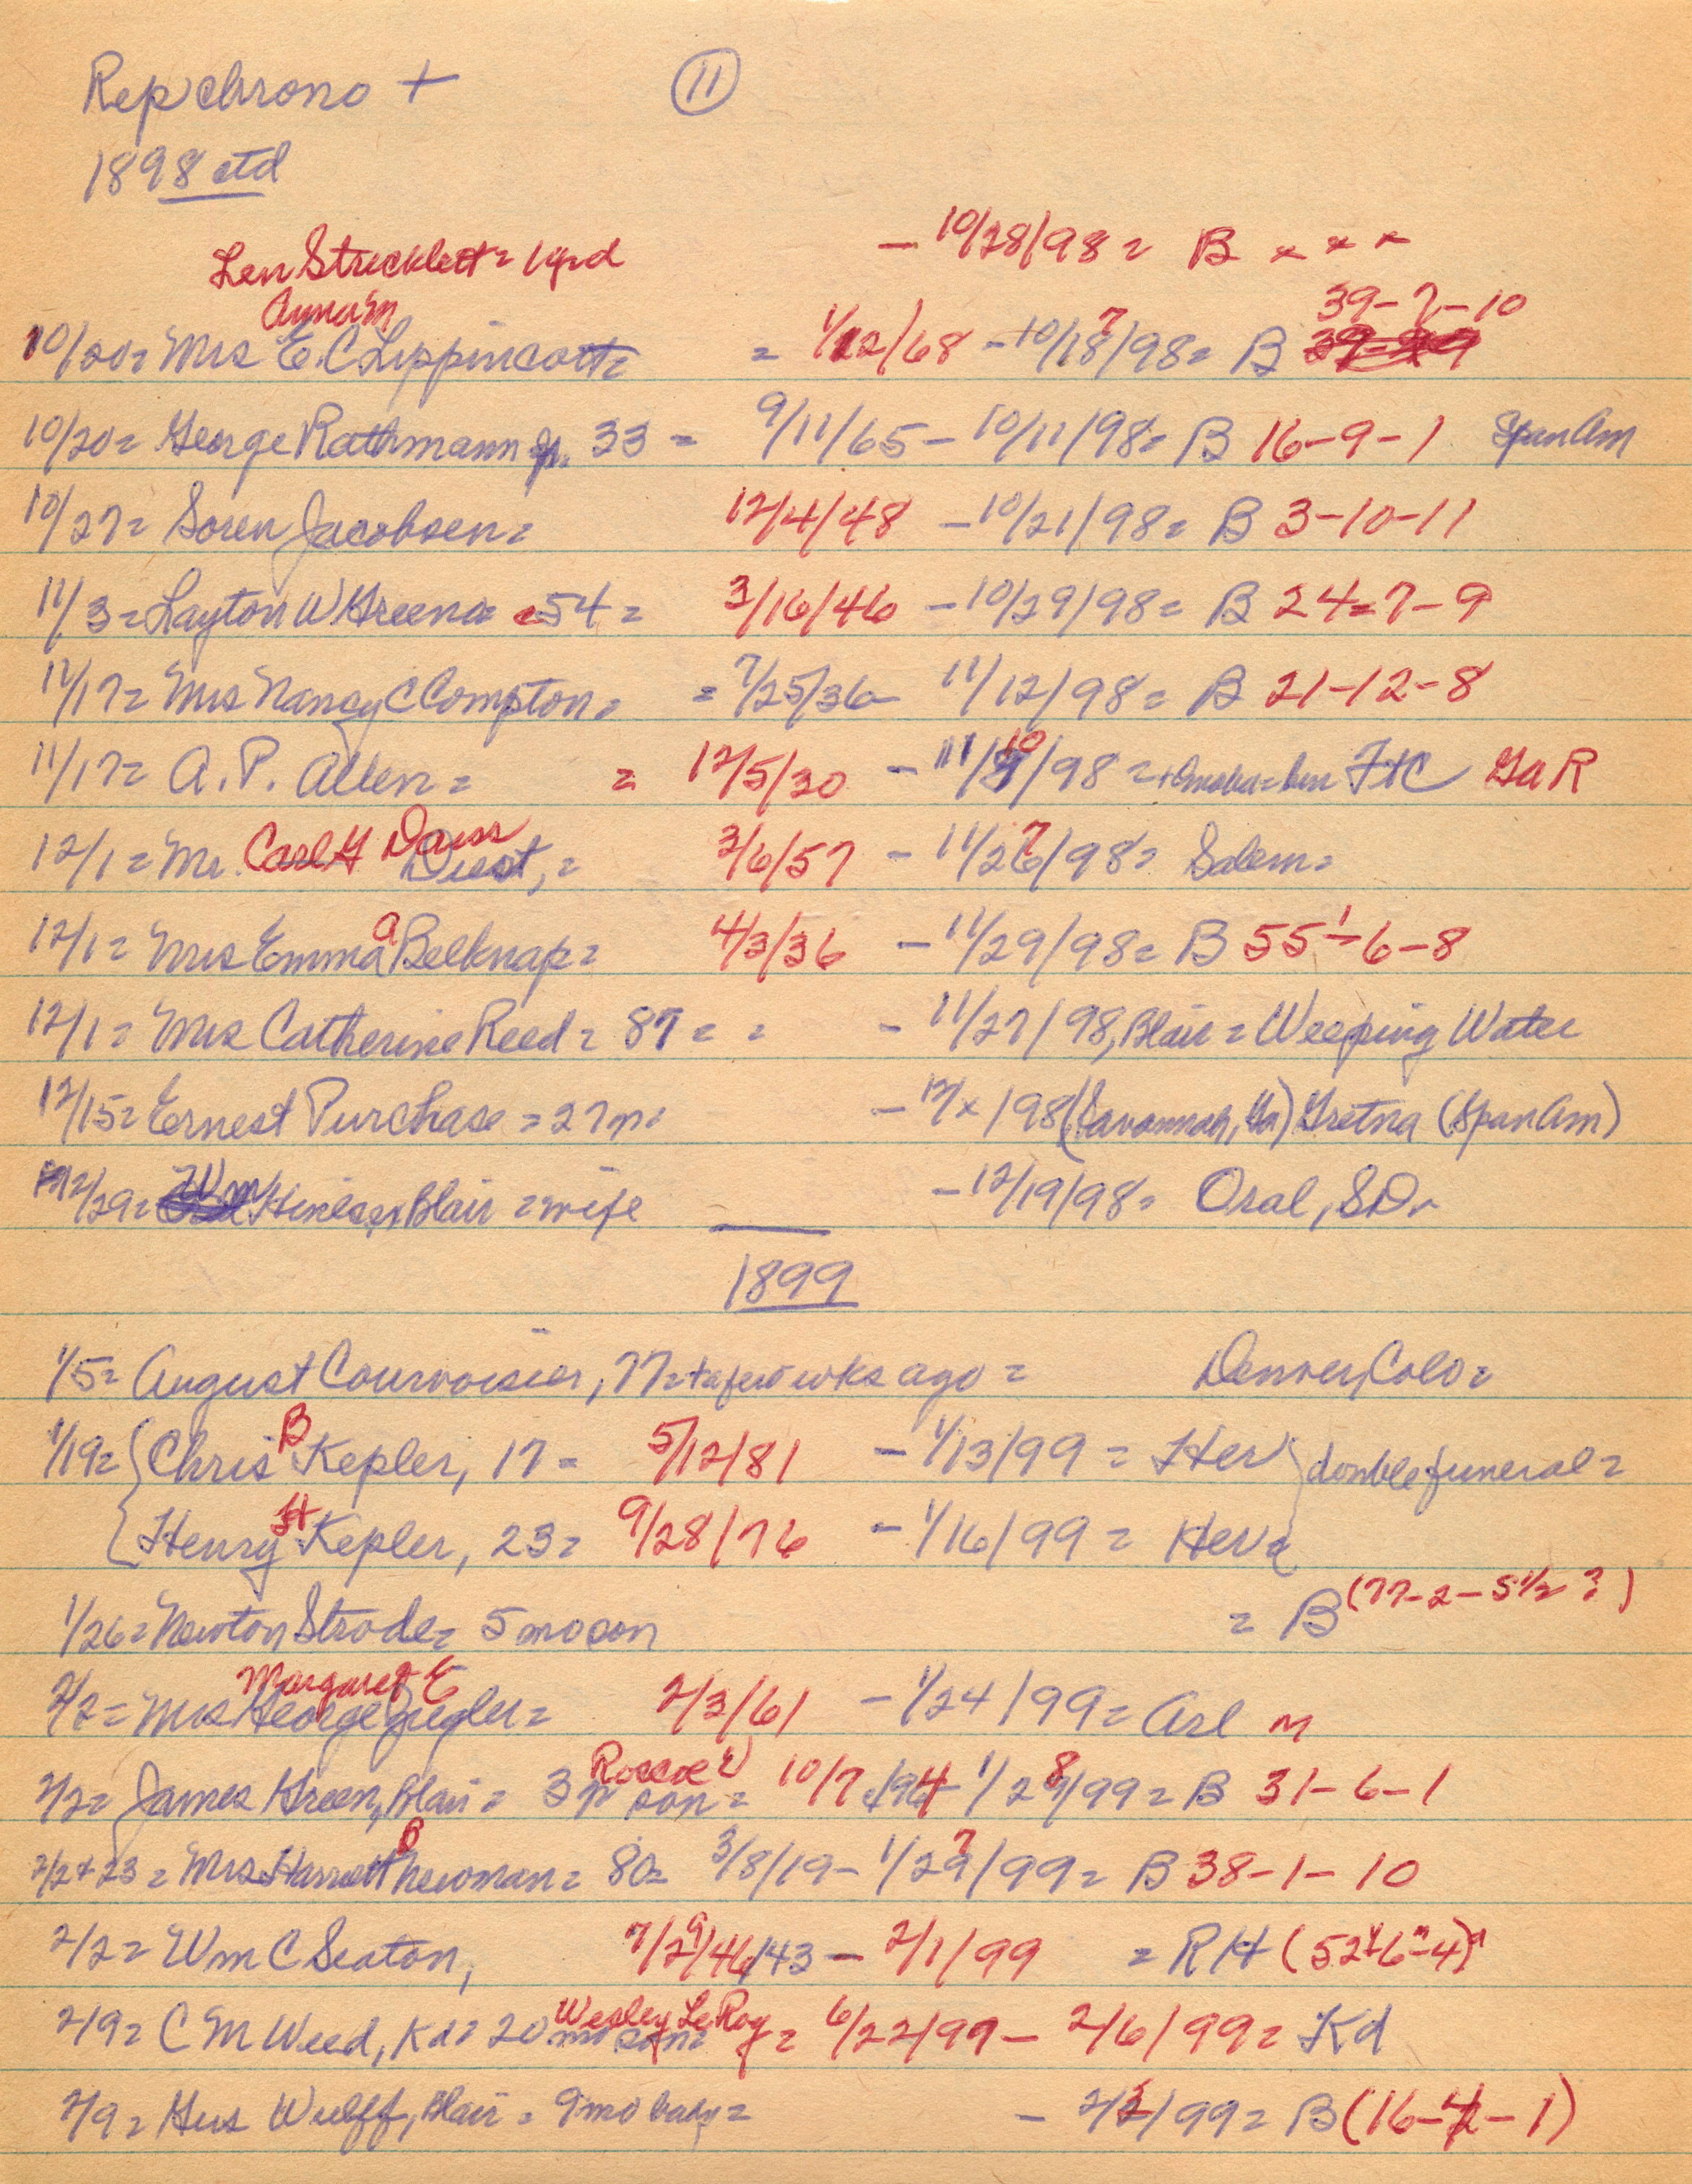 Rep chrono + 11
1898 ctd
Len Strecklett = 1 yr d - 10/28/98 = B x x x
Anna m 39-7-10
10/20 = Mrs E. C Lippincott = = 1/12/68 - 10/18/98 = B
7
10/20 = George Rathmann Jr. 33 = 9/11/65 - 10/11/98 = B 16-9-1 Span Am
10/27 = Soren Jacobsen = 12/4/48 - 10/21/98 = B 3-10-11
11/3 = Layton W Greene 54 = 3/16/46 - 10/29/98 = B 24-7-9
11/17 = Mrs Nancy C Compton = = 7/25/36 - 11/12/98 = B 21-12-8
11/17 = A. P. Allen = = 12/5/30 - 11/10/98 = Omaha = FtC GaR
12/1 = Mr. Carl G Daiss Dust, = 3/6/57 - 11/26/98 = Salem =
7
12/1 = Mrs Emma A Belknap = 4/3/36 - 11/29/98 = B 55-1-6-8
12/1 = Mrs Catherine Reed = 87 = = - 11/27/98, Blair = Weeping Water
12/15 = Ernest Purchase = 27 m - 12/x/98 (Savannah, Ga) Gretna (Span Am)
12/29 = Wm Blair = wife - 12/19/98 = Oral, SD
1899
1/5 = August Courvoisier, 77 = + a few wks ago = Denver, Colo =
1/19 = { Chris B Kepler, 17 = 5/12/81 - 1/13/99 = Her } double funeral =
{ Henry H Kepler, 23 = 9/28/76 - 1/16/99 = Her =
1/26 = Newton Strode = 5 mo son = B (77-2-5 1/2 ?)
Margaret E
2/2 = Mrs George Ziegler = 2/3/61 - 1/24/99 = Arl m
Roscoe
2/2 = James Green, Blair = 3 yr son = 10/7/94 - 1/28/99 = B 31-6-1
2/2 + 23 = Mrs Harriett B Newman = 80 = 3/8/19 - 1/29/99 = B 38-1-10
7
2/2 = Wm C Seaton, 7/29/46/43 - 2/1/99 = RH (52y-6m-4d)
Wesley LeRoy
2/9 = C M Weed, Kd = 20 mo son = = 6/22/97 - 2/6/99 = Kd
2/9 = Gus Wulff, Blair = 9 mo baby = - 2/3/99 = B (16-4-1)